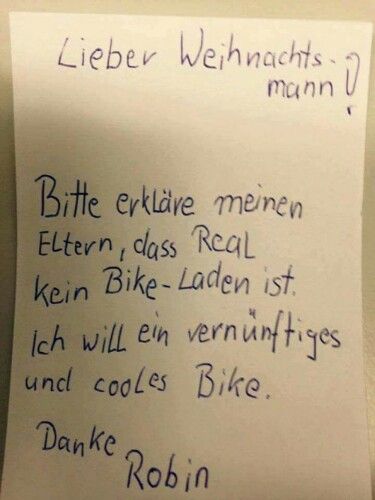 Lieber Weihnachts-
mann!
Bitte erkläre meinen
Eltern, dass Real
kein Bike-Laden ist.
Ich will ein vernünftiges
und cooles Bike.
Danke
Robin